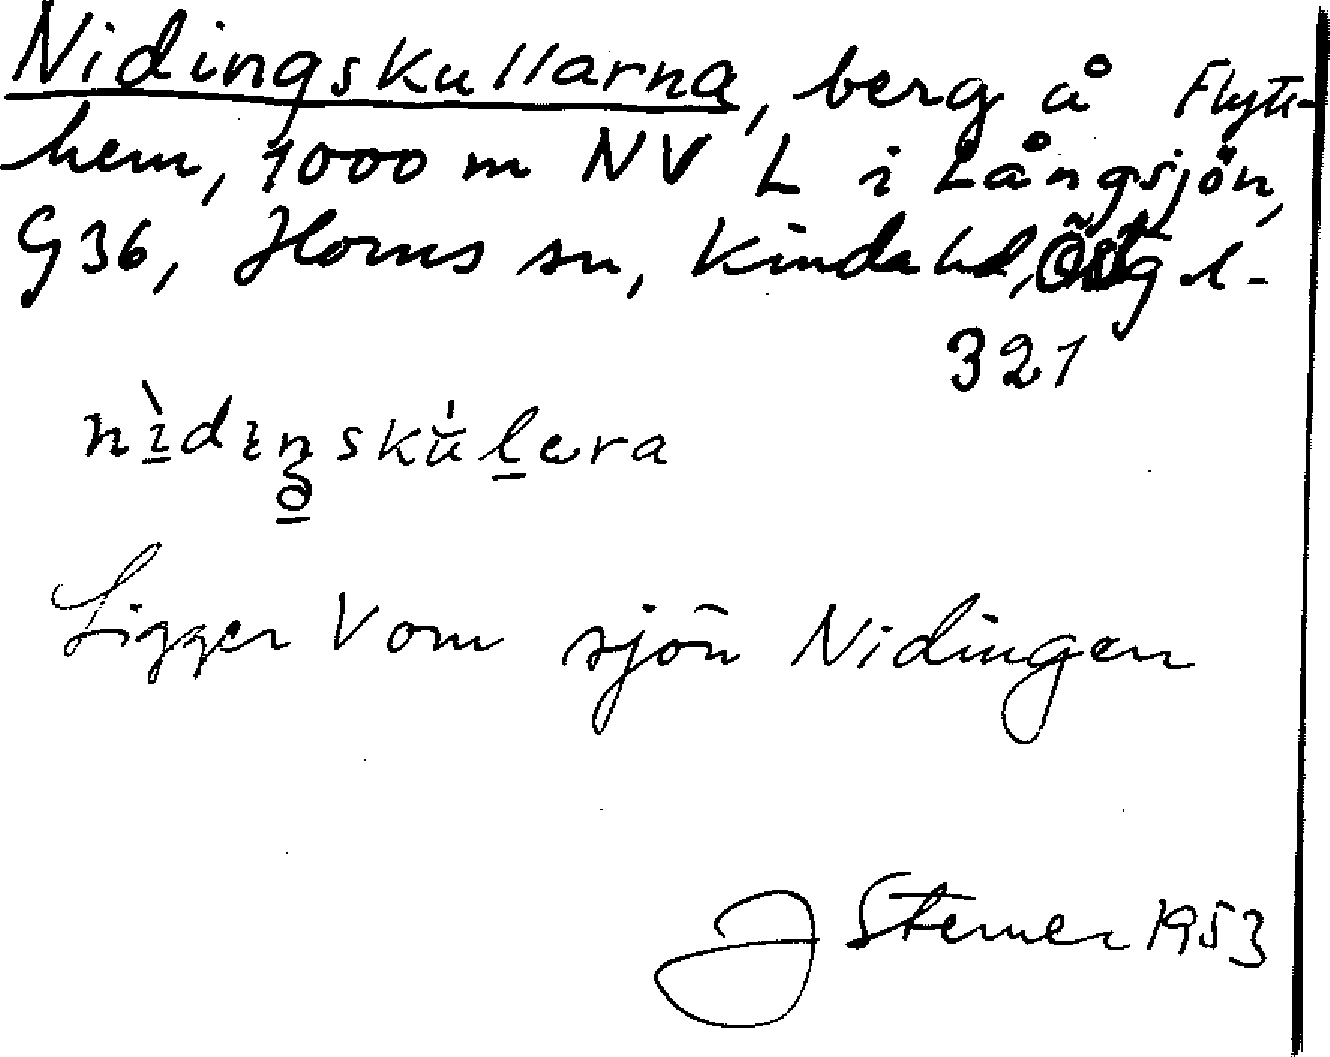 Nidingskullarna, berg å Flytt-
hem, 1000 m NV L i Långsjön,
G36, Horns sn, Kinda hd, Östg l.
321
nìdıŋskúlera
Ligger V om sjön Nidingen
J Sterner 1953